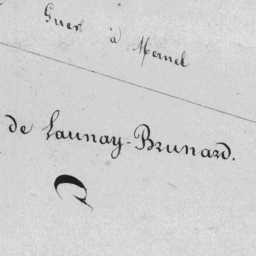 Guer à Mernel
de Launay-Brunard.